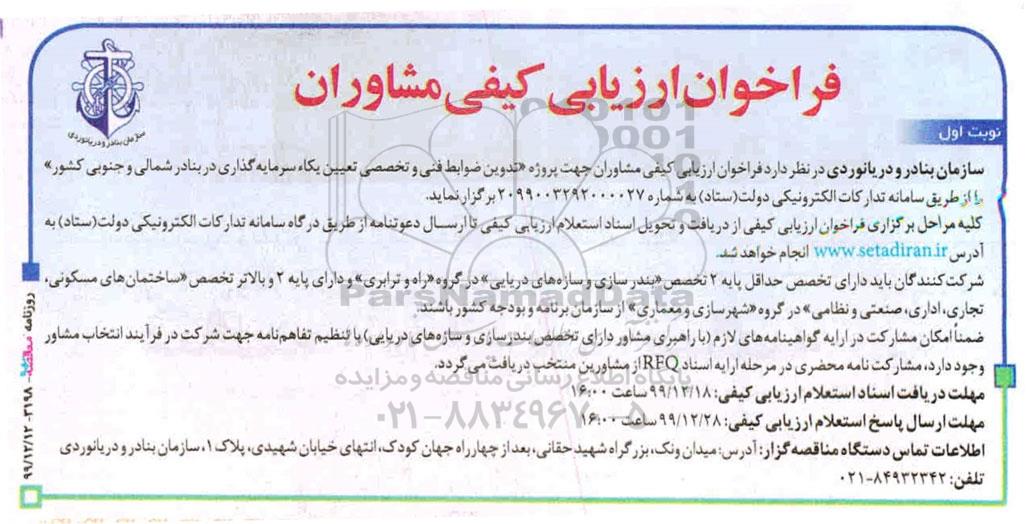 فراخوان ارزیابی کیفی مشاوران
سازمان بنادر و دریانوردی
نوبت اول
سازمان بنادر و دریانوردی در نظر دارد فراخوان ارزیابی کیفی مشاوران جهت پروژه «تدوین ضوابط فنی و تخصصی تعیین یکاء سرمایه گذاری در بنادر شمالی و جنوبی کشور»
را از طریق سامانه تدارکات الکترونیکی دولت (ستاد) به شماره ۲۰۹۹۰۰۳۲۹۲۰۰۰۰۲۷ برگزار نماید.
کلیه مراحل برگزاری فراخوان ارزیابی کیفی از دریافت و تحویل اسناد استعلام ارزیابی کیفی تا ارسال دعوتنامه از طریق درگاه سامانه تدارکات الکترونیکی دولت (ستاد) به
آدرس www.setadiran.ir انجام خواهد شد.
شرکت کنندگان باید دارای تخصص حداقل پایه ۲ تخصص «بندرسازی و سازه‌های دریایی» در گروه «راه و ترابری» و دارای پایه ۲ و بالاتر تخصص «ساختمان‌های مسکونی،
تجاری، اداری، صنعتی و نظامی» در گروه «شهرسازی و معماری» از سازمان برنامه و بودجه کشور باشند.
ضمناً امکان مشارکت در ارایه گواهینامه‌های لازم (با راهبری مشاور دارای تخصص بندرسازی و سازه‌های دریایی) با تنظیم تفاهم‌نامه جهت شرکت در فرآیند انتخاب مشاور
وجود دارد، مشارکت نامه محضری در مرحله ارایه اسناد RFQ از مشاورین منتخب دریافت می گردد.
مهلت دریافت اسناد استعلام ارزیابی کیفی: ۹۹/۱۲/۱۸ ساعت ۱۶:۰۰
مهلت ارسال پاسخ استعلام ارزیابی کیفی: ۹۹/۱۲/۲۸ ساعت ۱۶:۰۰
اطلاعات تماس دستگاه مناقصه گزار: آدرس: میدان ونک، بزرگراه شهید حقانی، بعد از چهارراه جهان کودک، انتهای خیابان شهیدی، پلاک ۱، سازمان بنادر و دریانوردی
تلفن: ۸۴۹۳۲۳۴۲-۰۲۱
روزنامه مناقصه - ۳۱۹۸ - ۹۹/۱۲/۱۲
ParsNamadData
پایگاه اطلاع رسانی مناقصه و مزایده
۰۲۱-۸۸۳۴۹۶۷۰-۵